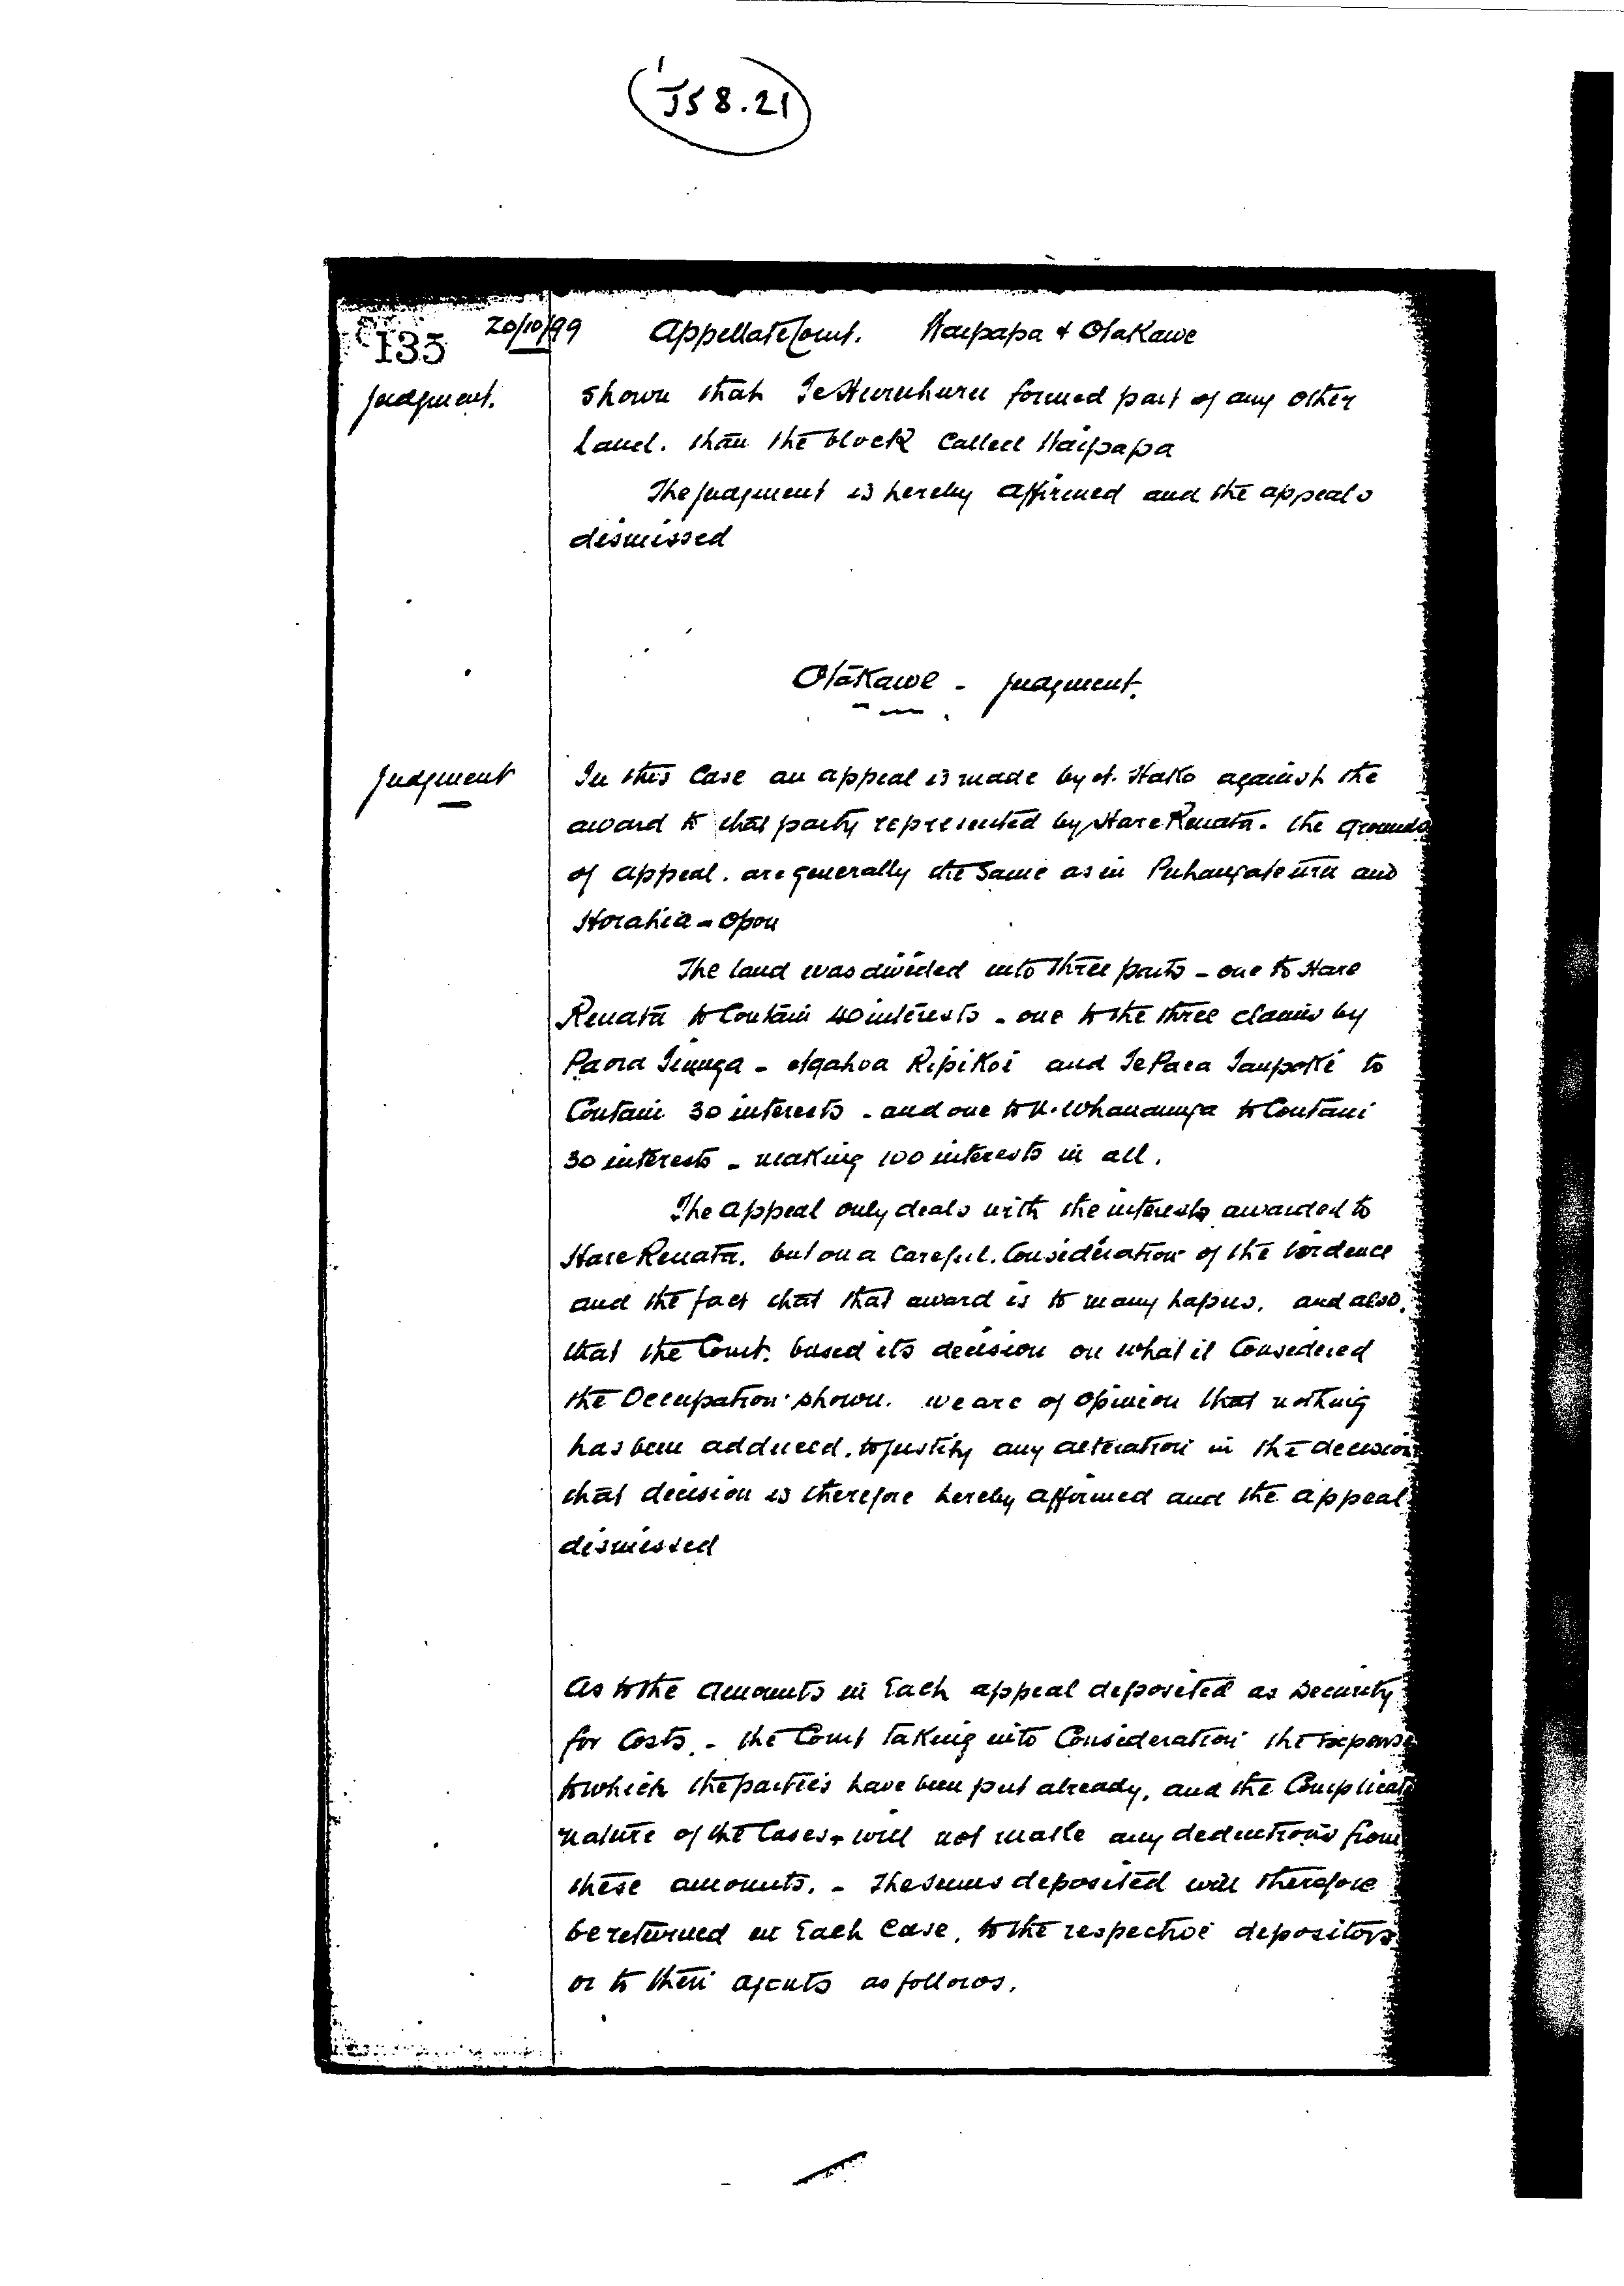 J58.21
135 20/10/99 Appellate Court. Waipapa & Otakawe
Judgment.
shown that Te Huruhuru formed part of any other
land. than the block called Waipapa
The judgment is hereby affirmed and the appeals
dismissed
Otakawe - Judgment.
Judgment
In this case an appeal is made by H. Hako against the
award to that party represented by Hare Renata. the grounds
of appeal. are generally the same as in Puhangateuru and
Horahia - Opou
The land was divided into three parts - one to Hare
Renata to contain 40 interests - one to the three claims by
Paora Tinuga - Ngahoa Ripikoi and Te Paea Taupoki to
Contain 30 interests - and one to W. Whanaunga to Contain
30 interests - making 100 interests in all.
The appeal only deals with the interests awarded to
Hare Renata. but on a careful. Consideration of the Evidence
and the fact that that award is to many hapus. and also.
that the Court. based its decision on what it Considered
the Occupation shown. we are of opinion that nothing
has been adduced. to justify any alteration in the decision
that decision is therefore hereby affirmed and the appeal
dismissed
As to the amounts in Each appeal deposited as Security
for Costs. - the Court taking into Consideration the Expense
to which the parties have been put already, and the Complicate
nature of the Cases - will not make any deductions from
these amounts. - The sums deposited will therefore
be returned in Each Case. to the respective depositors
or to their agents as follows.